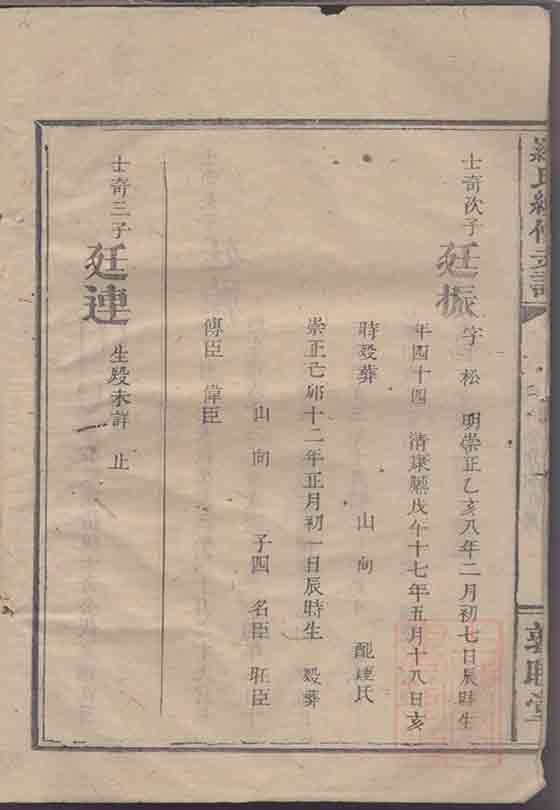 氏續修支譜
敦睦堂
士奇次子
廷振
字 松 明崇正乙亥八年二月初七日辰時生
年四十四 清康熙戊午十七年五月十八日亥
時歿葬 山 向 配 氏
崇正己卯十二年正月初一日辰時生 歿葬
山 向 子四 名臣 旺臣
傳臣 偉臣
士奇三子
廷連
生歿未詳 止